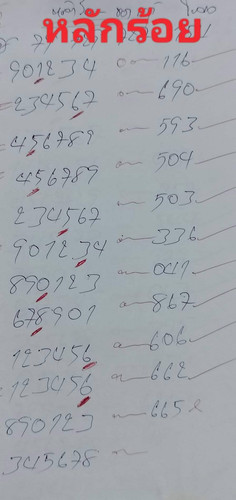 หลักร้อย
901234 — 116
234567 — 690
456789 — 593
456789 — 504
234567 — 503
901234 — 336
890123 — 041
678901 — 867
123456 — 606
123456 — 662
890123 — 665
345678 —